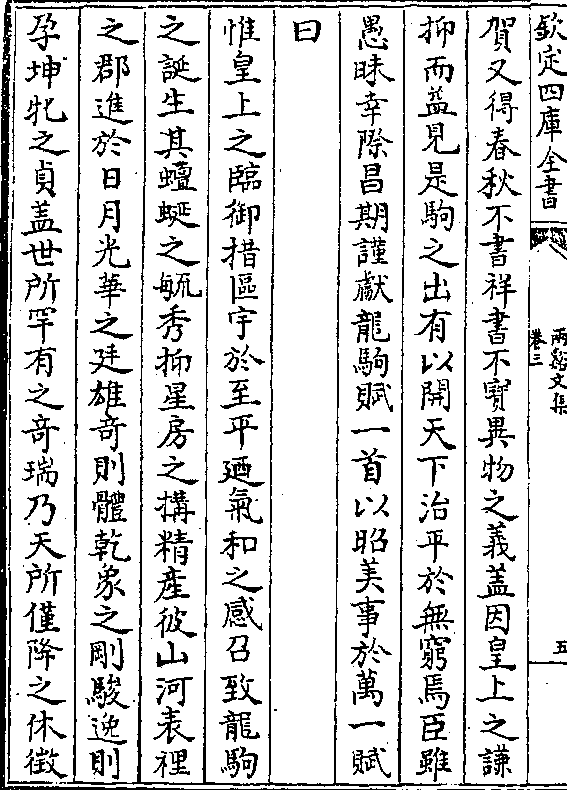 欽定四庫全書
兩谿文集
卷三
五
賀又得春秋不書祥書不寳異物之義盖因皇上之謙
抑而益見是駒之出有以開天下治平於無窮焉臣雖
愚昧幸際昌期謹獻龍駒賦一首以昭美事於萬一賦
曰
惟皇上之臨御措區宇於至平廼氣和之感召致龍駒
之誕生其蟺蜒之毓秀抑星房之搆精産彼山河表裡
之郡進於日月光華之廷雄竒則體乾象之剛駿逸則
孕坤牝之貞盖世所罕有之竒瑞乃天所僅降之休徴